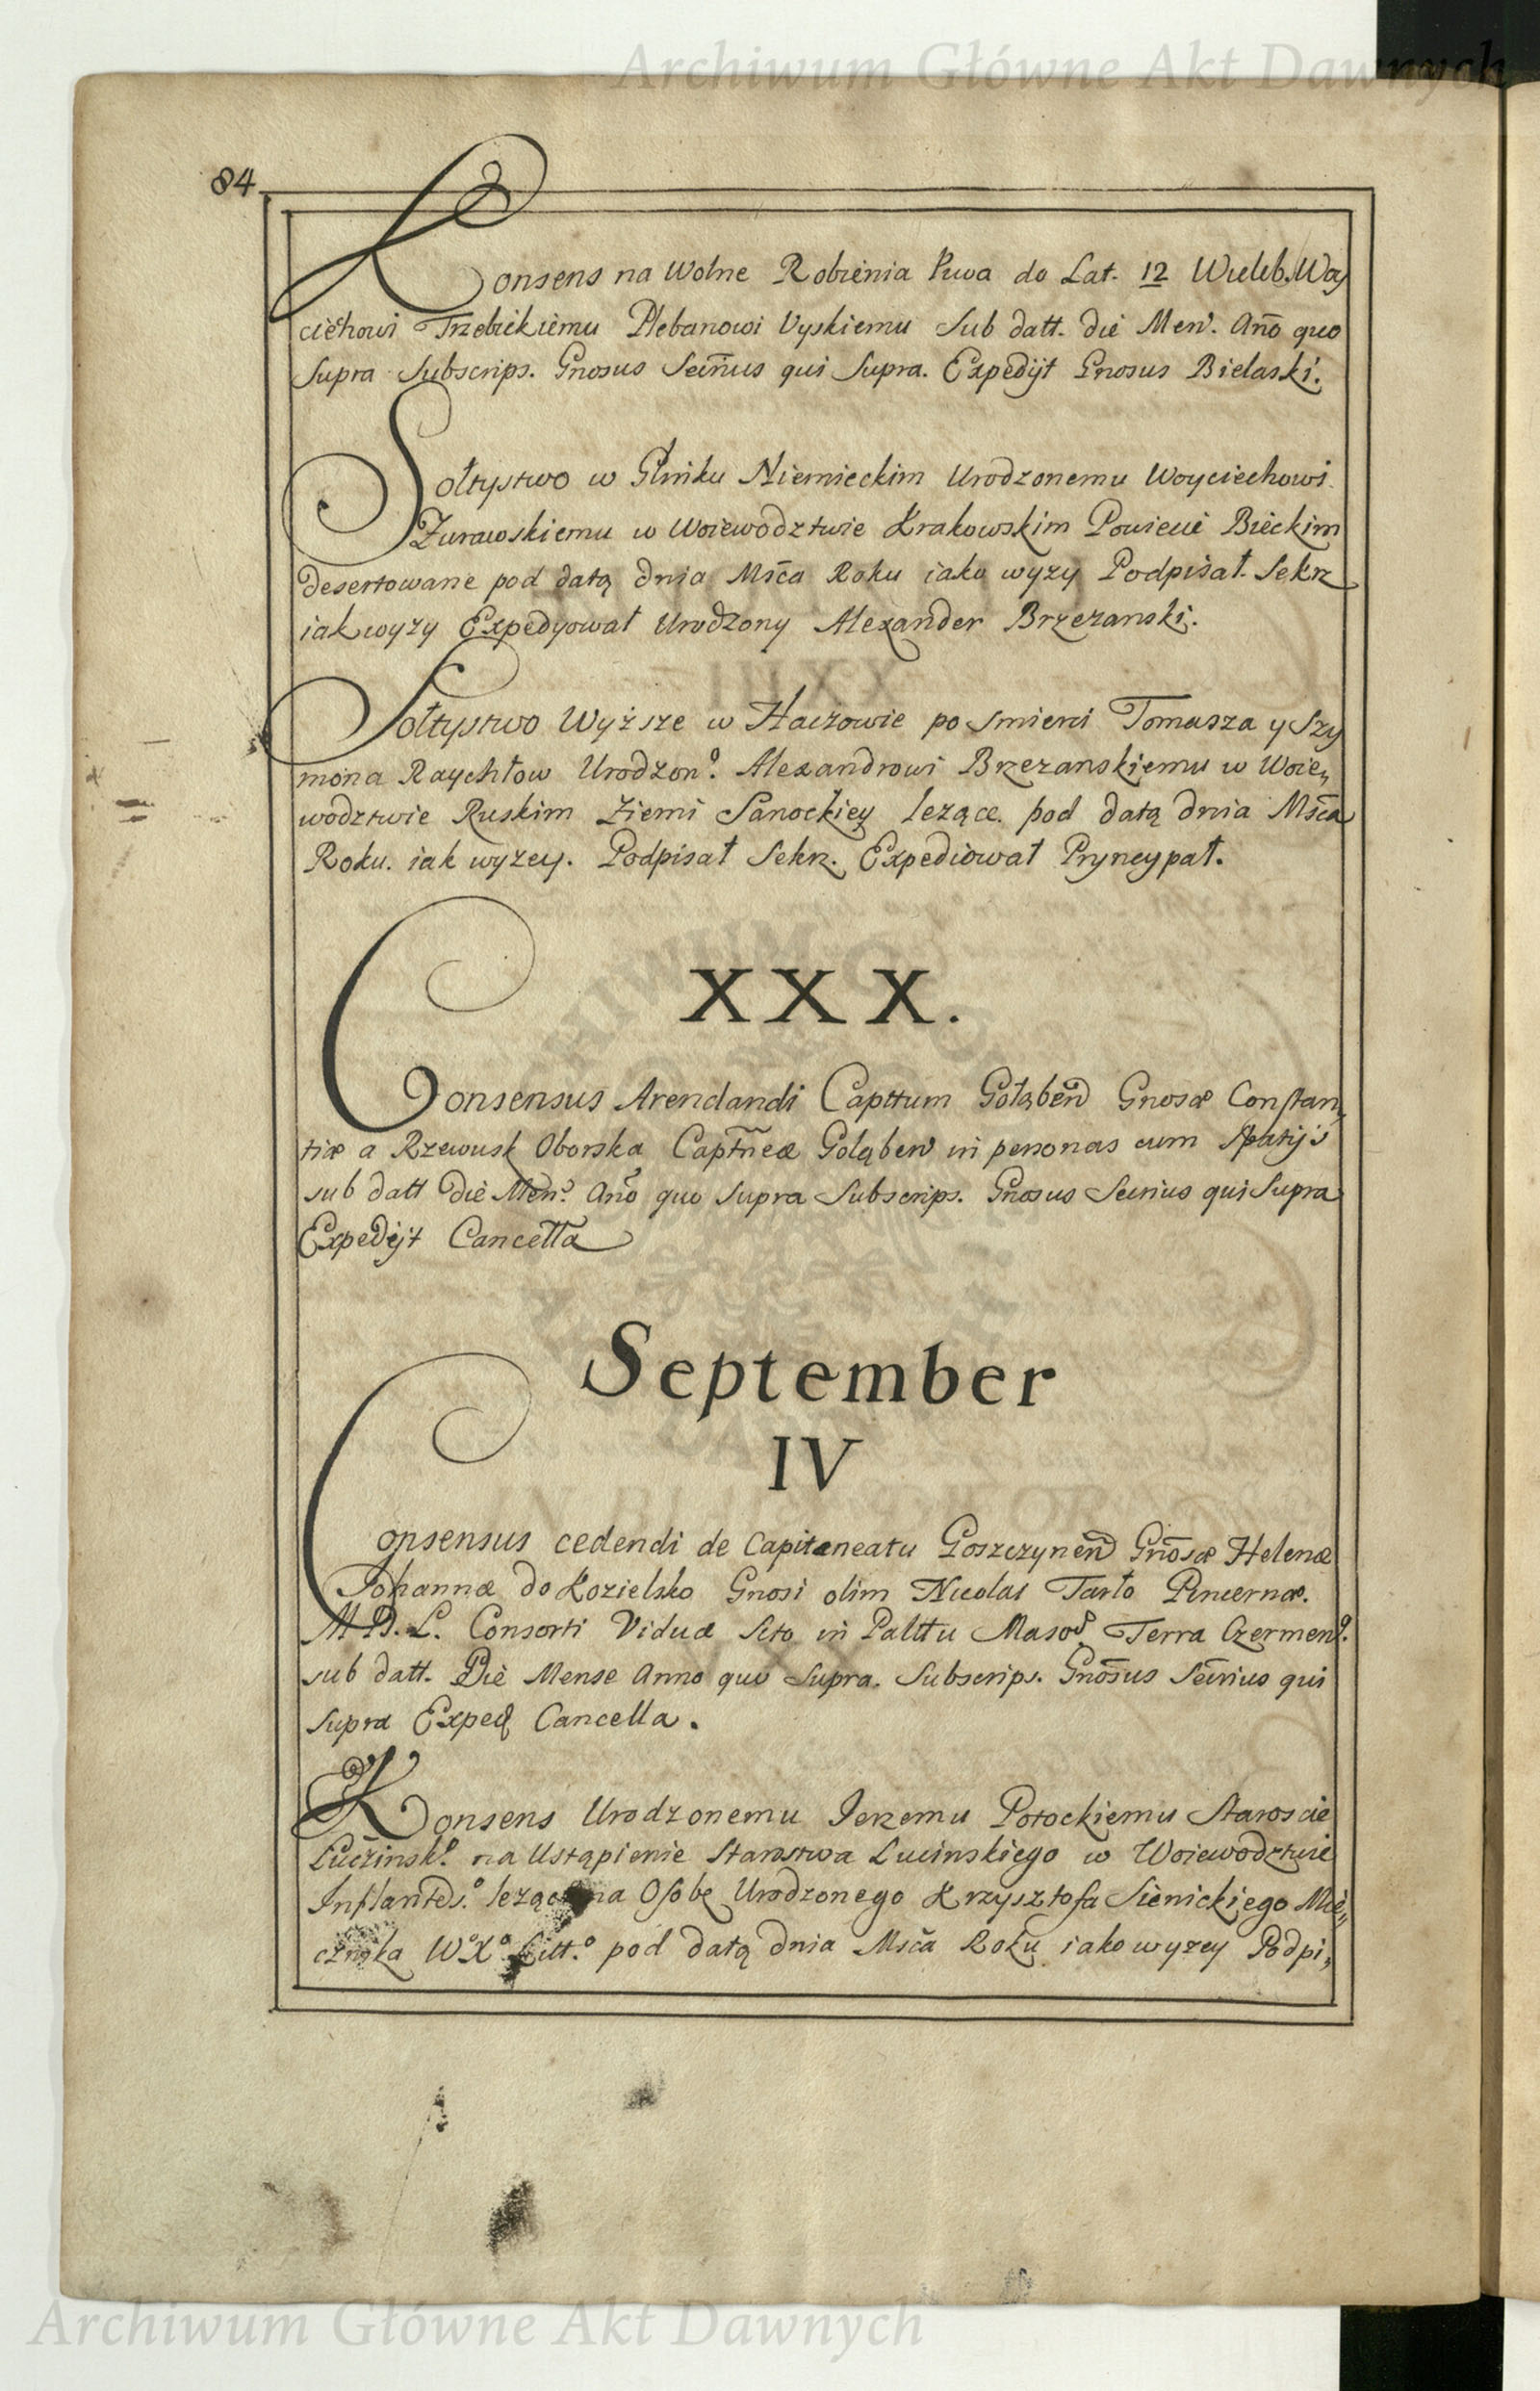 Archiwum Główne Akt Dawnych
84
Konsens na Wolne Robienia Piwa do Lat. 12 Wieleb. Woy
ciechowi Trzebickiemu Plebanowi Uyskiemu Sub datt. die Men. Año quo
Supra Subscrips. Gnosus Secrius qui Supra. Expedijt Gnosus Bielaski.
Sołtystwo w Glinku Niemieckim Urodzonemu Woyciechowi
Zurawskiemu w Woiewodztwie Krakowskim Powiecie Bieckim
desertowane pod datą dnia Msca Roku iako wyzy Podpisał. Sekr
iak wyzy Expedyował Urodzony Alexander Brzezanski.
Sołtystwo Wyższe w Haczowie po smierci Tomasza y Szy
mona Raychłow Urodzon.º Alexandrowi Brzezanskiemu w Woie,,
wodztwie Ruskim Ziemi Sanockiey lezące. pod datą dnia Msca
Roku. iak wyzey. Podpisał Sekr. Expediował Pryncypał.
XXX.
Consensus Arendandi Capttum Gołąben Gnosæ Constan,,
tiæ a Rzewusk Oborska Captneæ Gołąben in personas cum Spatijs
sub datt Die Men. Año quo Supra Subscrips. Gnosus Secrius qui Supra
Expedijt Cancella
September
IV
Consensus cedendi de Capitaneatu Goszczynen Gnosæ Helenæ
Johannæ do Kozielsko Gnosi olim Nicolai Tarło Pincernæ.
M. D. L. Consorti Viduæ Sito in Palttu Masov Terra Czermen.
sub datt. Die Mense Anno quo Supra. Subscrips. Gnosus Secrius qui
Supra Exped Cancella.
Konsens Urodzonemu Jerzemu Potockiemu Staroscie
Lucinsk.º na Ustąpienie Starostwa Lucinskiego w Woiewodztwie
Inflantds.º lezące na Osobę Urodzonego Krzysztofa Sienickiego Mie,,
cznika Wº Xº Litt.º pod datą dnia Msca Roku iako wyzey Podpi,,
Archiwum Główne Akt Dawnych